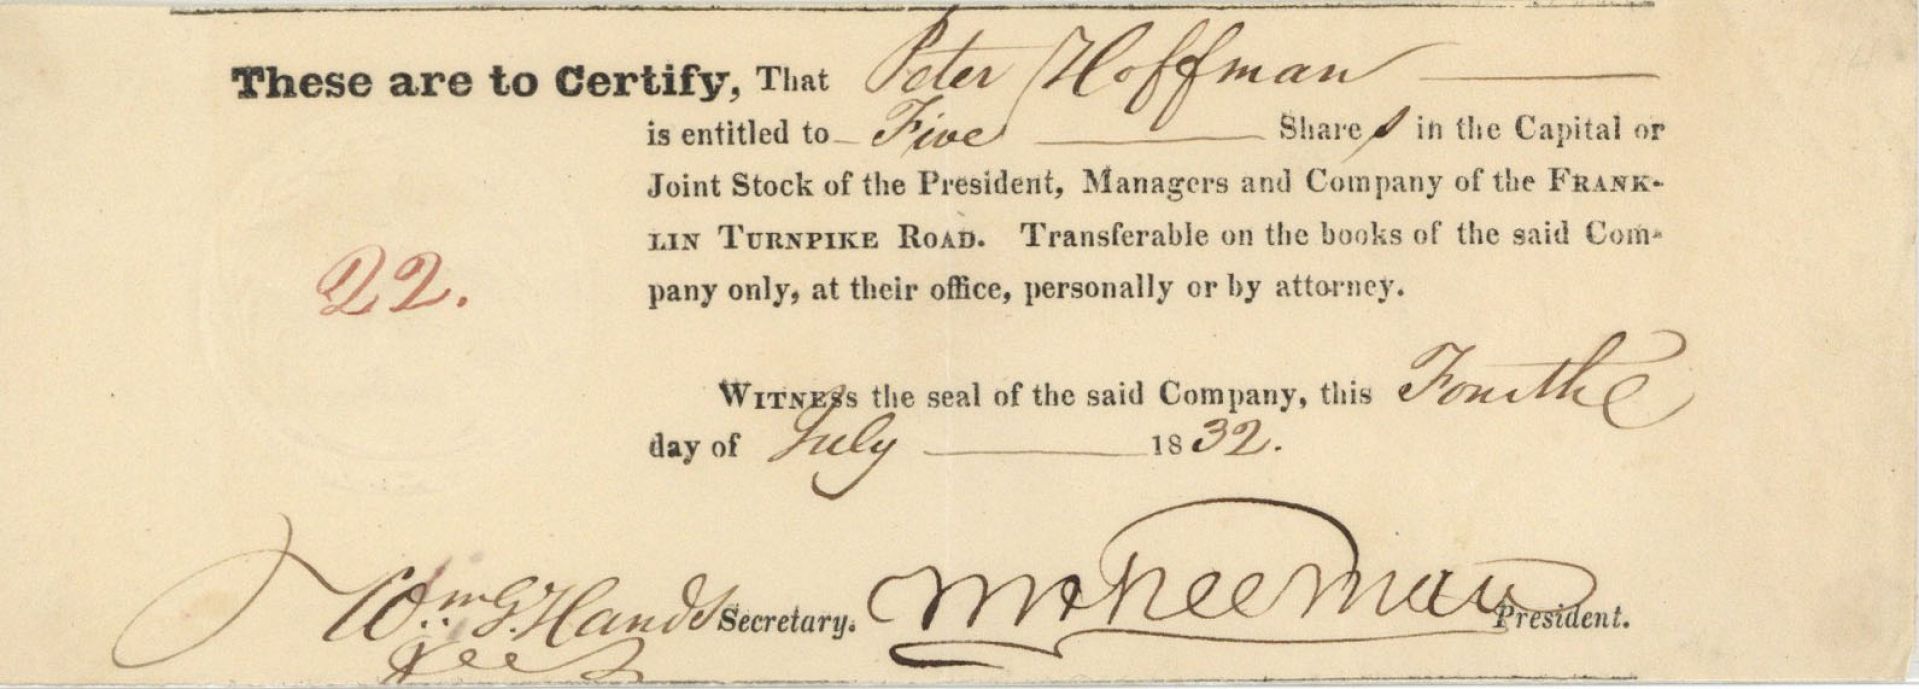 These are to Certify, That Peter Hoffman
is entitled to Five Shares in the Capital or
Joint Stock of the President, Managers and Company of the FRANK-
LIN TURNPIKE ROAD. Transferable on the books of the said Com-
pany only, at their office, personally or by attorney.
22.
WITNESS the seal of the said Company, this Fourth
day of July 1832.
Wm. G. Hands Secretary. President.